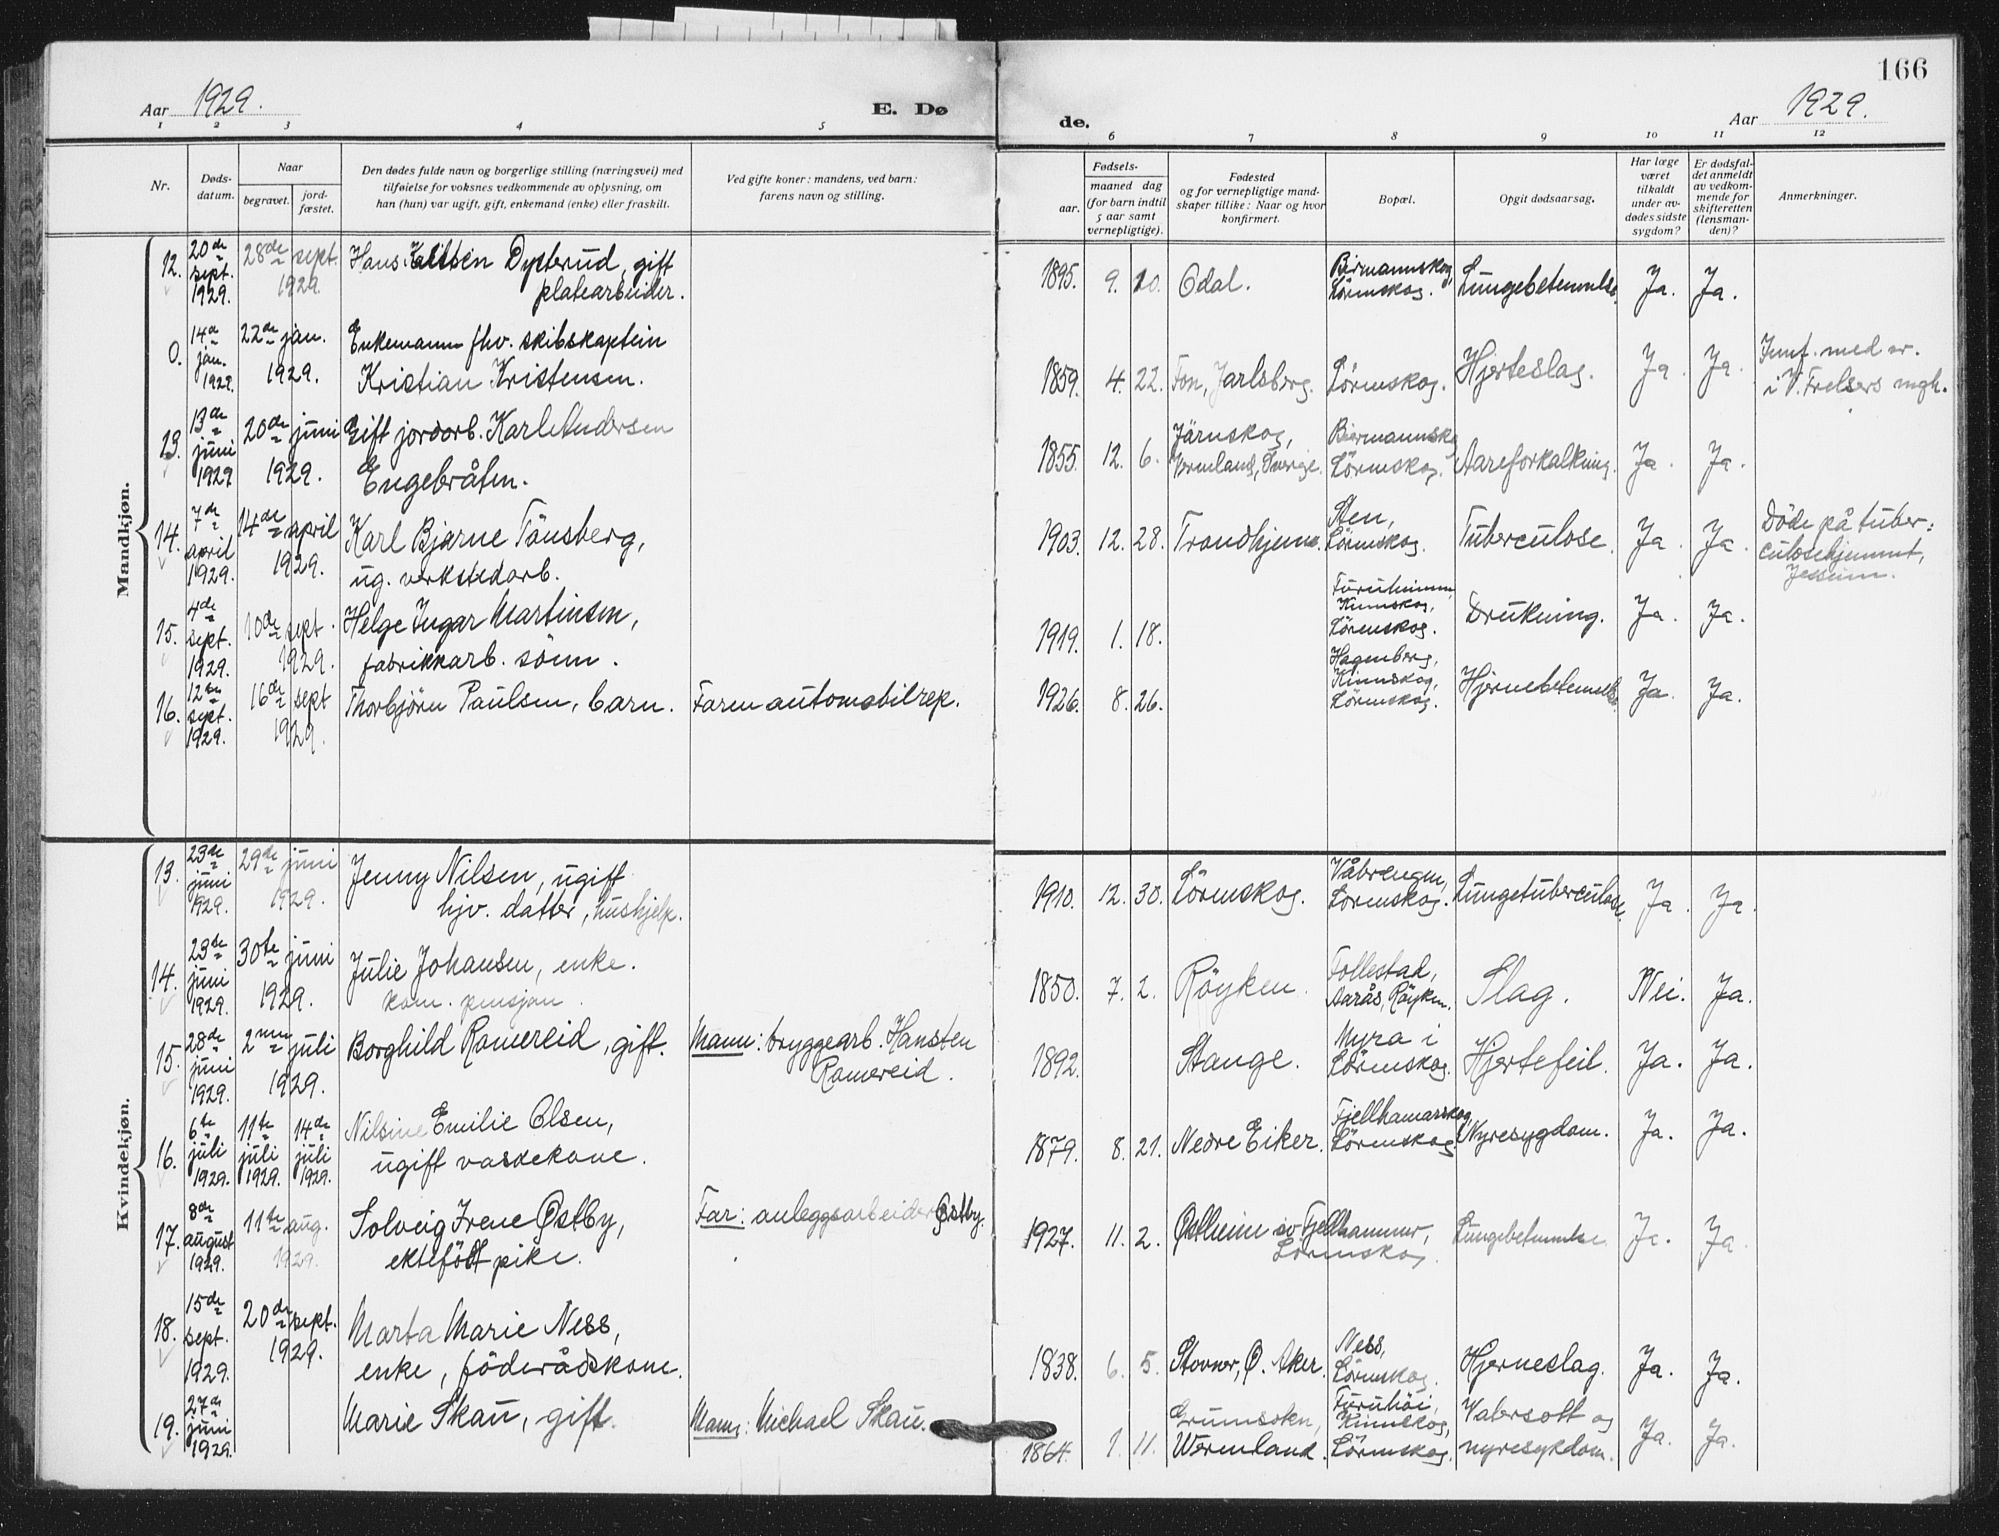 166
Aar 1929.
E. Dø
de.
Aar 1929.
1 2 3 4 5
6 7 8 9 10 11 12
Nr.
Døds-
datum.
Naar
begravet.
jord-
fæstet.
Den dødes fulde navn og borgerlige stilling (næringsvei) med
tilføielse for voksnes vedkommende av oplysning, om
han (hun) var ugift, gift, enkemand (enke) eller fraskilt.
Ved gifte koner: mandens, ved barn:
farens navn og stilling.
Fødsels-
aar.
maaned dag
(for barn indtil
5 aar samt
vernepligtige).
Fødested
og for vernepligtige mand-
skaper tillike: Naar og hvor
konfirmert.
Bopæl.
Opgit dødsaarsag.
Har læge
været
tilkaldt
under av-
dødes sidste
sygdom?
Er dødsfal-
det anmeldt
av vedkom-
mende for
skifteretten
(lensman-
den)?
Anmerkninger.
Mandkjøn.
12. 20de sept. 1929. 28de sept. 1929.
Hans Dysterud, gift
platearbeider.
1895. 9. Odal. Lørenskog. Lungebetennelse. Ja. Ja.
0. 14de jan. 1929. 22de jan. 1929.
Enkemann fhv. skibskaptein
Kristian Kristensen.
1859. 4. 22. Fon, Jarlsberg. Lørenskog. Hjerteslag. Ja. Ja.
Innf. med nr.
i V. Frelsers mgh.
13. 13de juni 1929 20de juni 1929.
Gift jordarb. Karl Andersen
Engebråten.
1855. 12. 6. Järnskog,
Vermland, Sverige. Lørenskog. Aareforkalkning. Ja. Ja.
14. 7de april 1929. 14de april 1929.
Karl Bjarne Tönsberg,
ug. verkstedarb.
1903. 12. 28. Trondhjem. Sten,
Lørenskog. Tuberculose. Ja. Ja.
Döde på tuber:
culosehjemmet,
Jessheim.
15. 4de sept. 1929. 10de sept. 1929.
Helge Ingar Martinsen,
fabrikkarb. sönn.
1919. 1. 18. Finnskog,
Lørenskog. Drukning. Ja. Ja.
16. 12te sept. 1929. 16de sept 1929.
Thorbjörn Paulsen, barn. Faren automobilrep.
1926. 8. 26. Hagenberg,
Finnskog,
Lørenskog. Hjernebetennelse. Ja. Ja.
Kvindekjøn.
13. 23de juni 1929. 29de juni 1929.
Jenny Nilsen, ugift
hjv. datter, hushjelp.
1910. 12. 30. Lørenskog. Våbrengen,
Lørenskog. Lungetuberculose. Ja. Ja.
14. 23de juni 1929. 30te juni 1929.
Julie Johansen, enke.
kom. pensjon.
1850. 7. 2. Röyken. Follestad,
Aarås, Röyken. Slag. Nei. Ja.
15. 28de juni 1929. 2nen juli 1929.
Borghild Romereid, gift. Mann: bryggearb. Hansten
Romereid.
1892. Stange. Myra i
Lørenskog. Hjertefeil. Ja. Ja.
16. 6te juli 1929. 11te juli 1929. 14de juli 1929.
Nilsine Emilie Olsen,
ugift vaskekone.
1879. 8. 21. Nedre Eiker. Fjellhamarskog
Lørenskog. Nyresygdom. Ja. Ja.
17. 8de august 1929. 11te aug. 1929.
Solveig Irene Østby,
ektefödt pike. Far: anleggsarbeider Østby.
1927. 11. 2. Østheim av Fjellhammer,
Lørenskog. Lungebetennelse. Ja. Ja
18. 15de sept. 1929. 20de sept. 1929.
Marta Marie Ness,
enke, föderådskone.
1838. 6. 5. Stovner, Ø. Aker. Ness,
Lørenskog. Hjerneslag. Ja. Ja.
19. 27de juni 1929.
Marie Skau, gift. Mann: Michael Skau.
1864. 1. 11. Grumsokn,
Wermland. Furuhöi,
Finnskog,
Lørenskog. Vatersott og
nyresykdom. Ja. Ja.